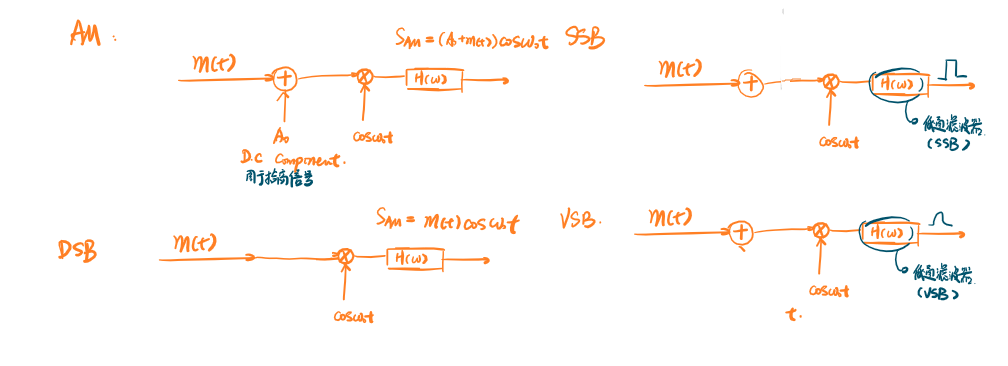 AM:
S_AM = (A₀+m(t)) cosω₀t
m(t)
+
×
H(ω)
A₀
cosω₀t
D.C Component.
用于抬高信号
SSB
m(t)
+
×
H(ω)
cosω₀t
低通滤波器
(SSB)
DSB
S_AM = m(t) cosω₀t
m(t)
×
H(ω)
cosω₀t
VSB.
m(t)
+
×
H(ω)
cosω₀t
低通滤波器
(VSB)
t.